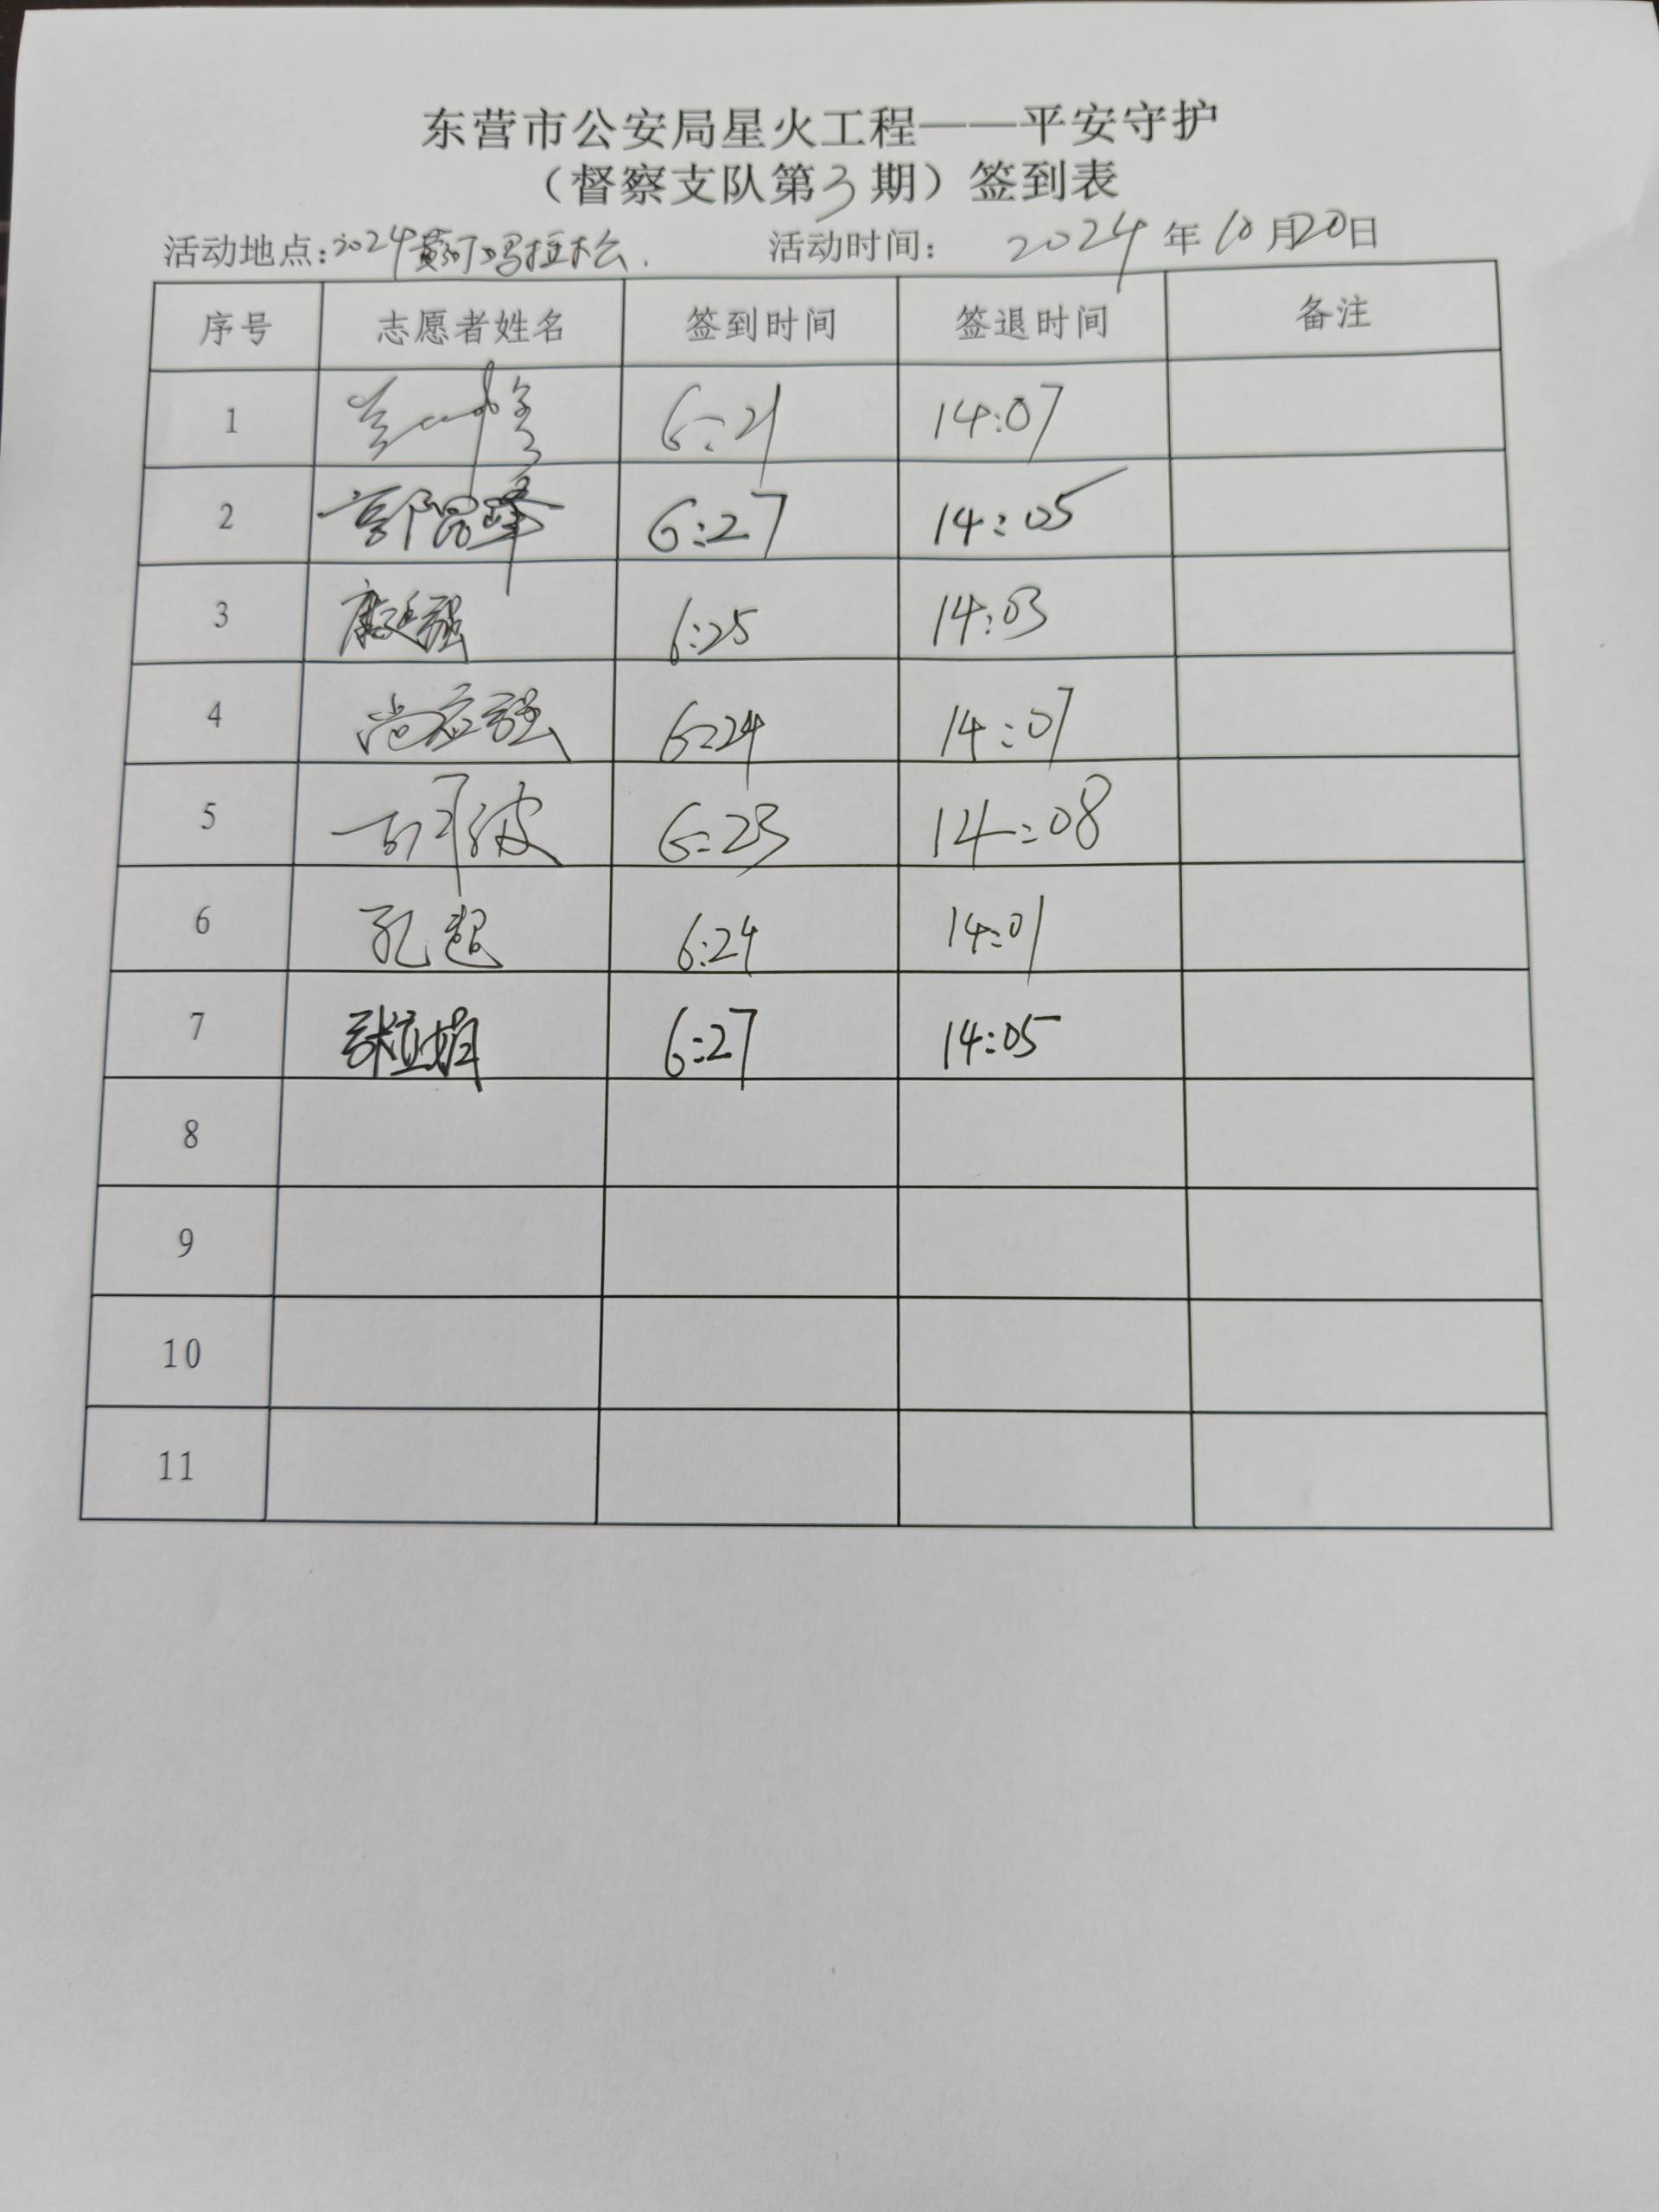 东营市公安局星火工程——平安守护
（督察支队第3期）签到表
活动地点：2024黄河口马拉松. 活动时间： 2024年10月20日
序号 志愿者姓名 签到时间 签退时间 备注
1 6:21 14:07
2 郭昆峰 6:27 14:05
3 6:25 14:03
4 尚应强 6:24 14:07
5 6:23 14:08
6 孔超 6:24 14:01
7 张立娟 6:27 14:05
8
9
10
11